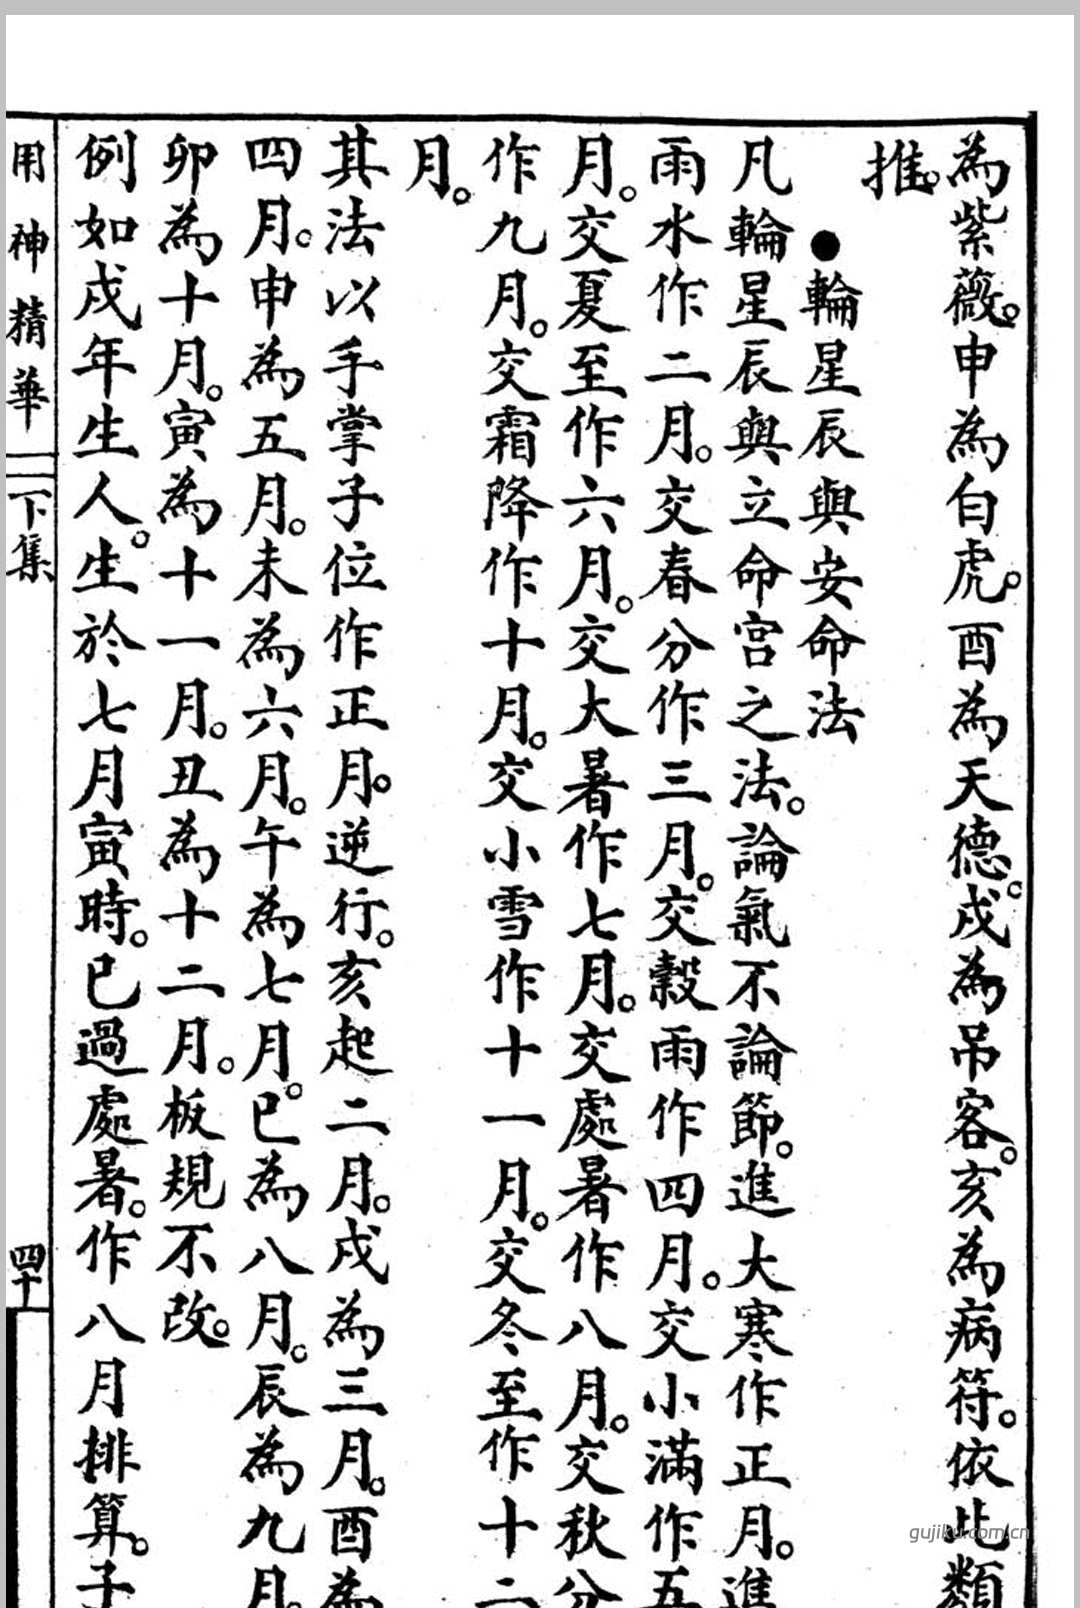 為紫薇。申為白虎。酉為天德。戌為吊客。亥為病符。依此類
推。
●輪星辰與安命法
凡輪星辰與立命宮之法。論氣不論節。進大寒作正月。進
雨水作二月。交春分作三月。交穀雨作四月。交小滿作五
月。交夏至作六月。交大暑作七月。交處暑作八月。交秋分
作九月。交霜降作十月。交小雪作十一月。交冬至作十二
月。
其法以手掌子位作正月。逆行。亥起二月。戌為三月。酉為
四月。申為五月。未為六月。午為七月。巳為八月。辰為九月。
卯為十月。寅為十一月。丑為十二月。板規不改。
例如戌年生人。生於七月寅時。已過處暑。作八月排算。子
用神精華 下集 四十
gujiku.com.cn